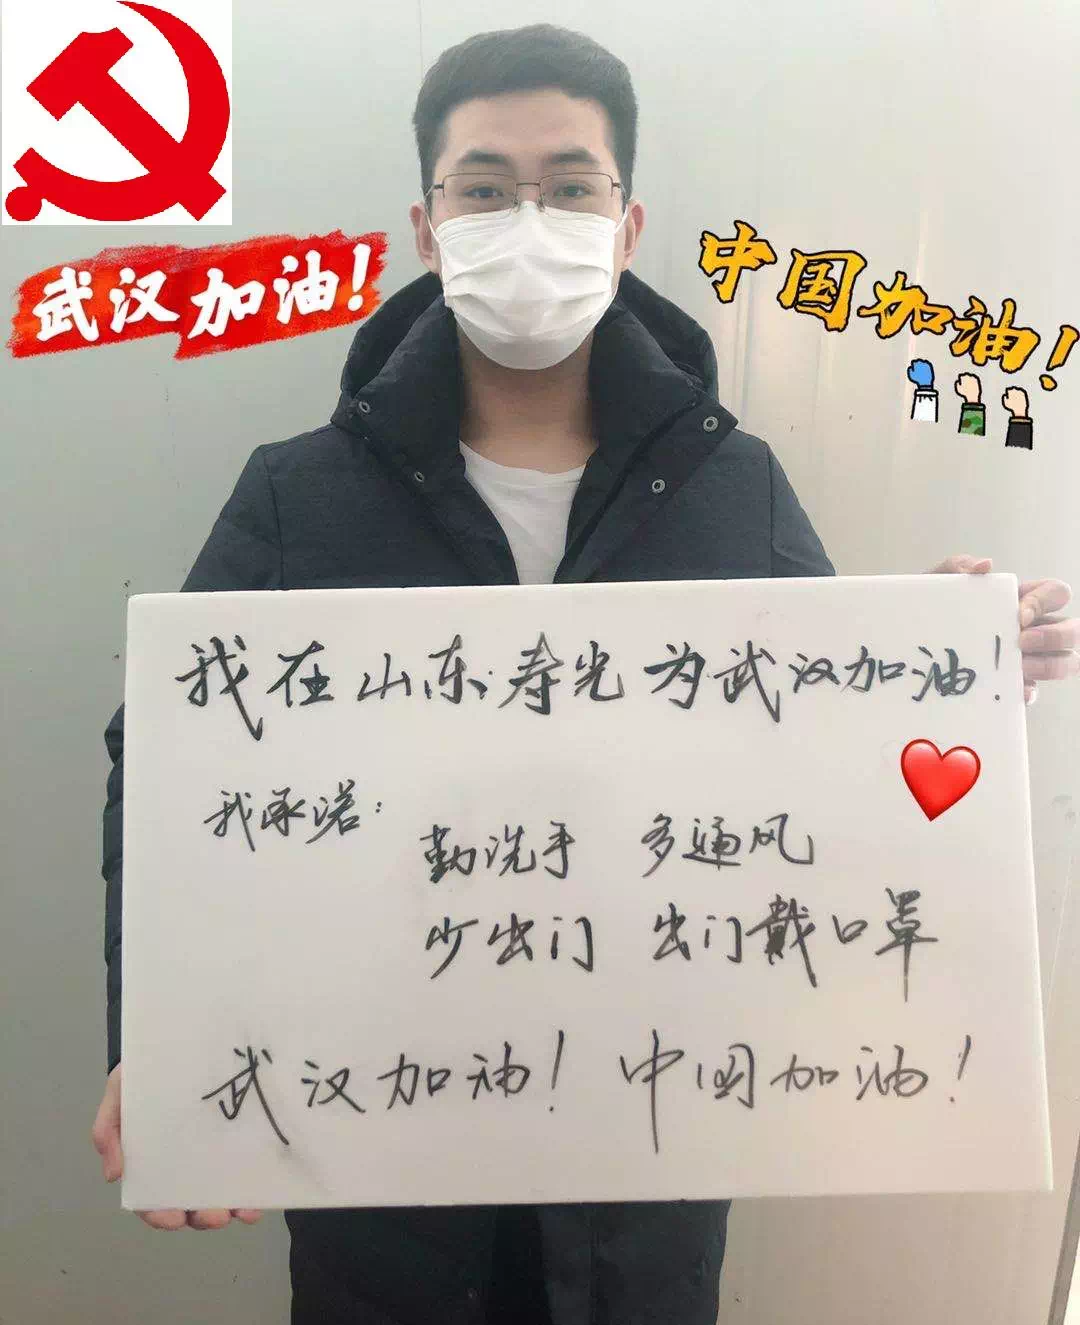 武汉加油!
中国加油!
我在山东寿光为武汉加油!
我承诺:
勤洗手 多通风
少出门 出门戴口罩
武汉加油! 中国加油!